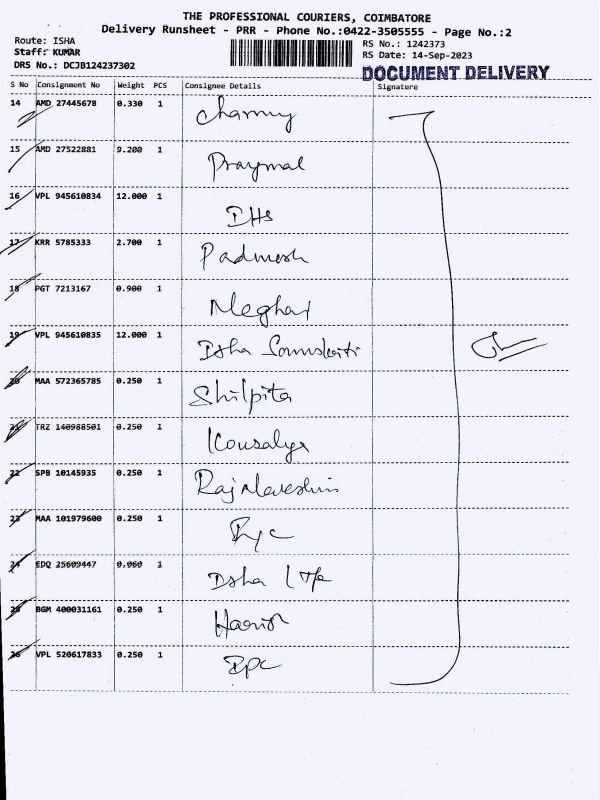 THE PROFESSIONAL COURIERS, COIMBATORE
Delivery Runsheet - PRR - Phone No.:0422-3505555 - Page No.:2
Route: ISHA
Staff: KUMAR
DRS No.: DCJB124237302
RS No.: 1242373
RS Date: 14-Sep-2023
DOCUMENT DELIVERY
S No Consignment No Weight PCS Consignee Details Signature
14 AMD 27445678 0.330 1
15 AMD 27522881 9.200 1
16 VPL 945610834 12.000 1 DHS
17 KRR 5785333 2.700 1 Padmesh
18 PGT 7213167 0.900 1 Meghai
19 VPL 945610835 12.000 1 Isha Samskriti
20 MAA 572365785 0.250 1 Shilpita
21 TRZ 140988501 0.250 1 Kousalya
22 SPB 10145935 0.250 1
23 MAA 101979600 0.250 1
24 EDQ 25609447 0.060 1 Isha Life
25 BGM 400031161 0.250 1
26 VPL 520617833 0.250 1